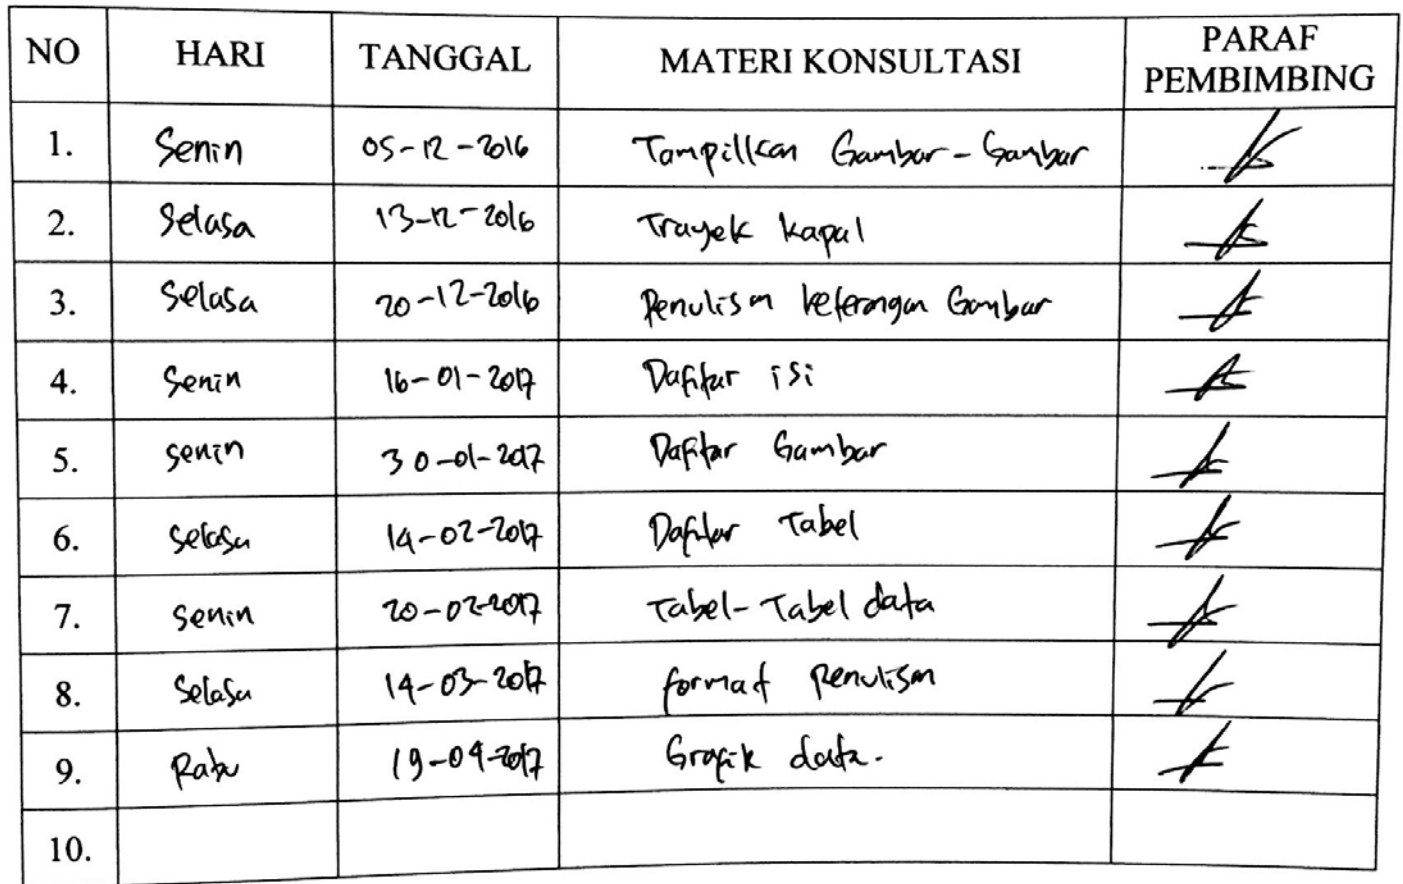 NO HARI TANGGAL MATERI KONSULTASI PARAF PEMBIMBING
1. Senin 05-12-2016 Tampilkan Gambar-Gambar
2. Selasa 13-12-2016 Trayek kapal
3. Selasa 20-12-2016 Penulisan keterangan Gambar
4. Senin 16-01-2017 Daftar isi
5. Senin 30-01-2017 Daftar Gambar
6. Selasa 14-02-2017 Daftar Tabel
7. Senin 20-02-2017 Tabel-Tabel data
8. Selasa 14-03-2017 format Penulisan
9. Rabu 19-04-2017 Grafik data.
10.